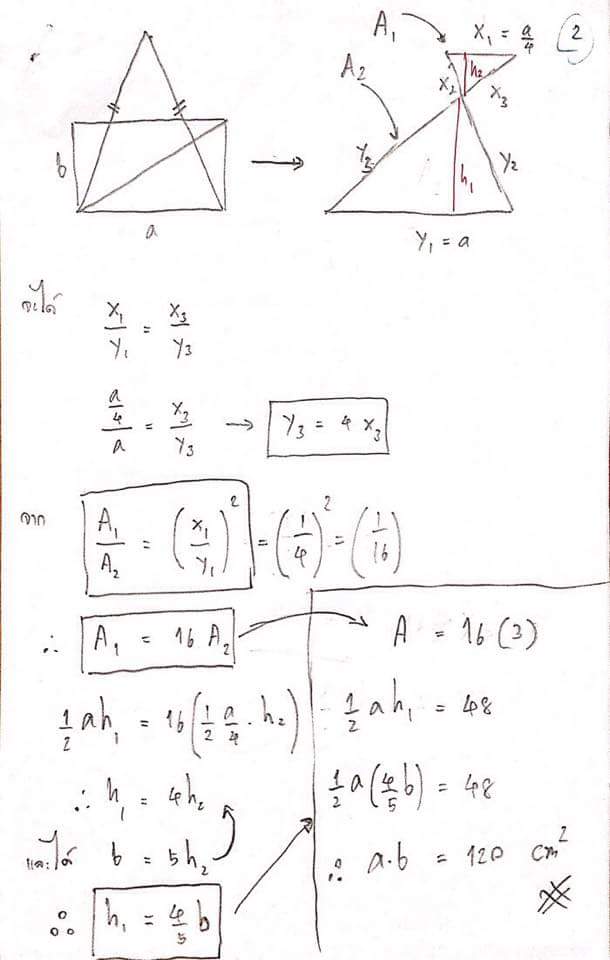 2
A₁
x₁ = a/4
A₂
h₂
x₂
x₃
b
y₃
y₂
h₁
a
y₁ = a
จะได้ x₁/y₁ = x₃/y₃
(a/4)/a = x₃/y₃ → y₃ = 4 x₃
จาก A₁/A₂ = (x₁/y₁)² = (1/4)² = (1/16)
∴ A₁ = 16 A₂
1/2 ah₁ = 16(1/2 a/4 · h₂)
∴ h₁ = 4h₂
และได้ b = 5h₂
∴ h₁ = 4/5 b
A = 16 (3)
1/2 a h₁ = 48
1/2 a(4/5 b) = 48
∴ a·b = 120 cm²